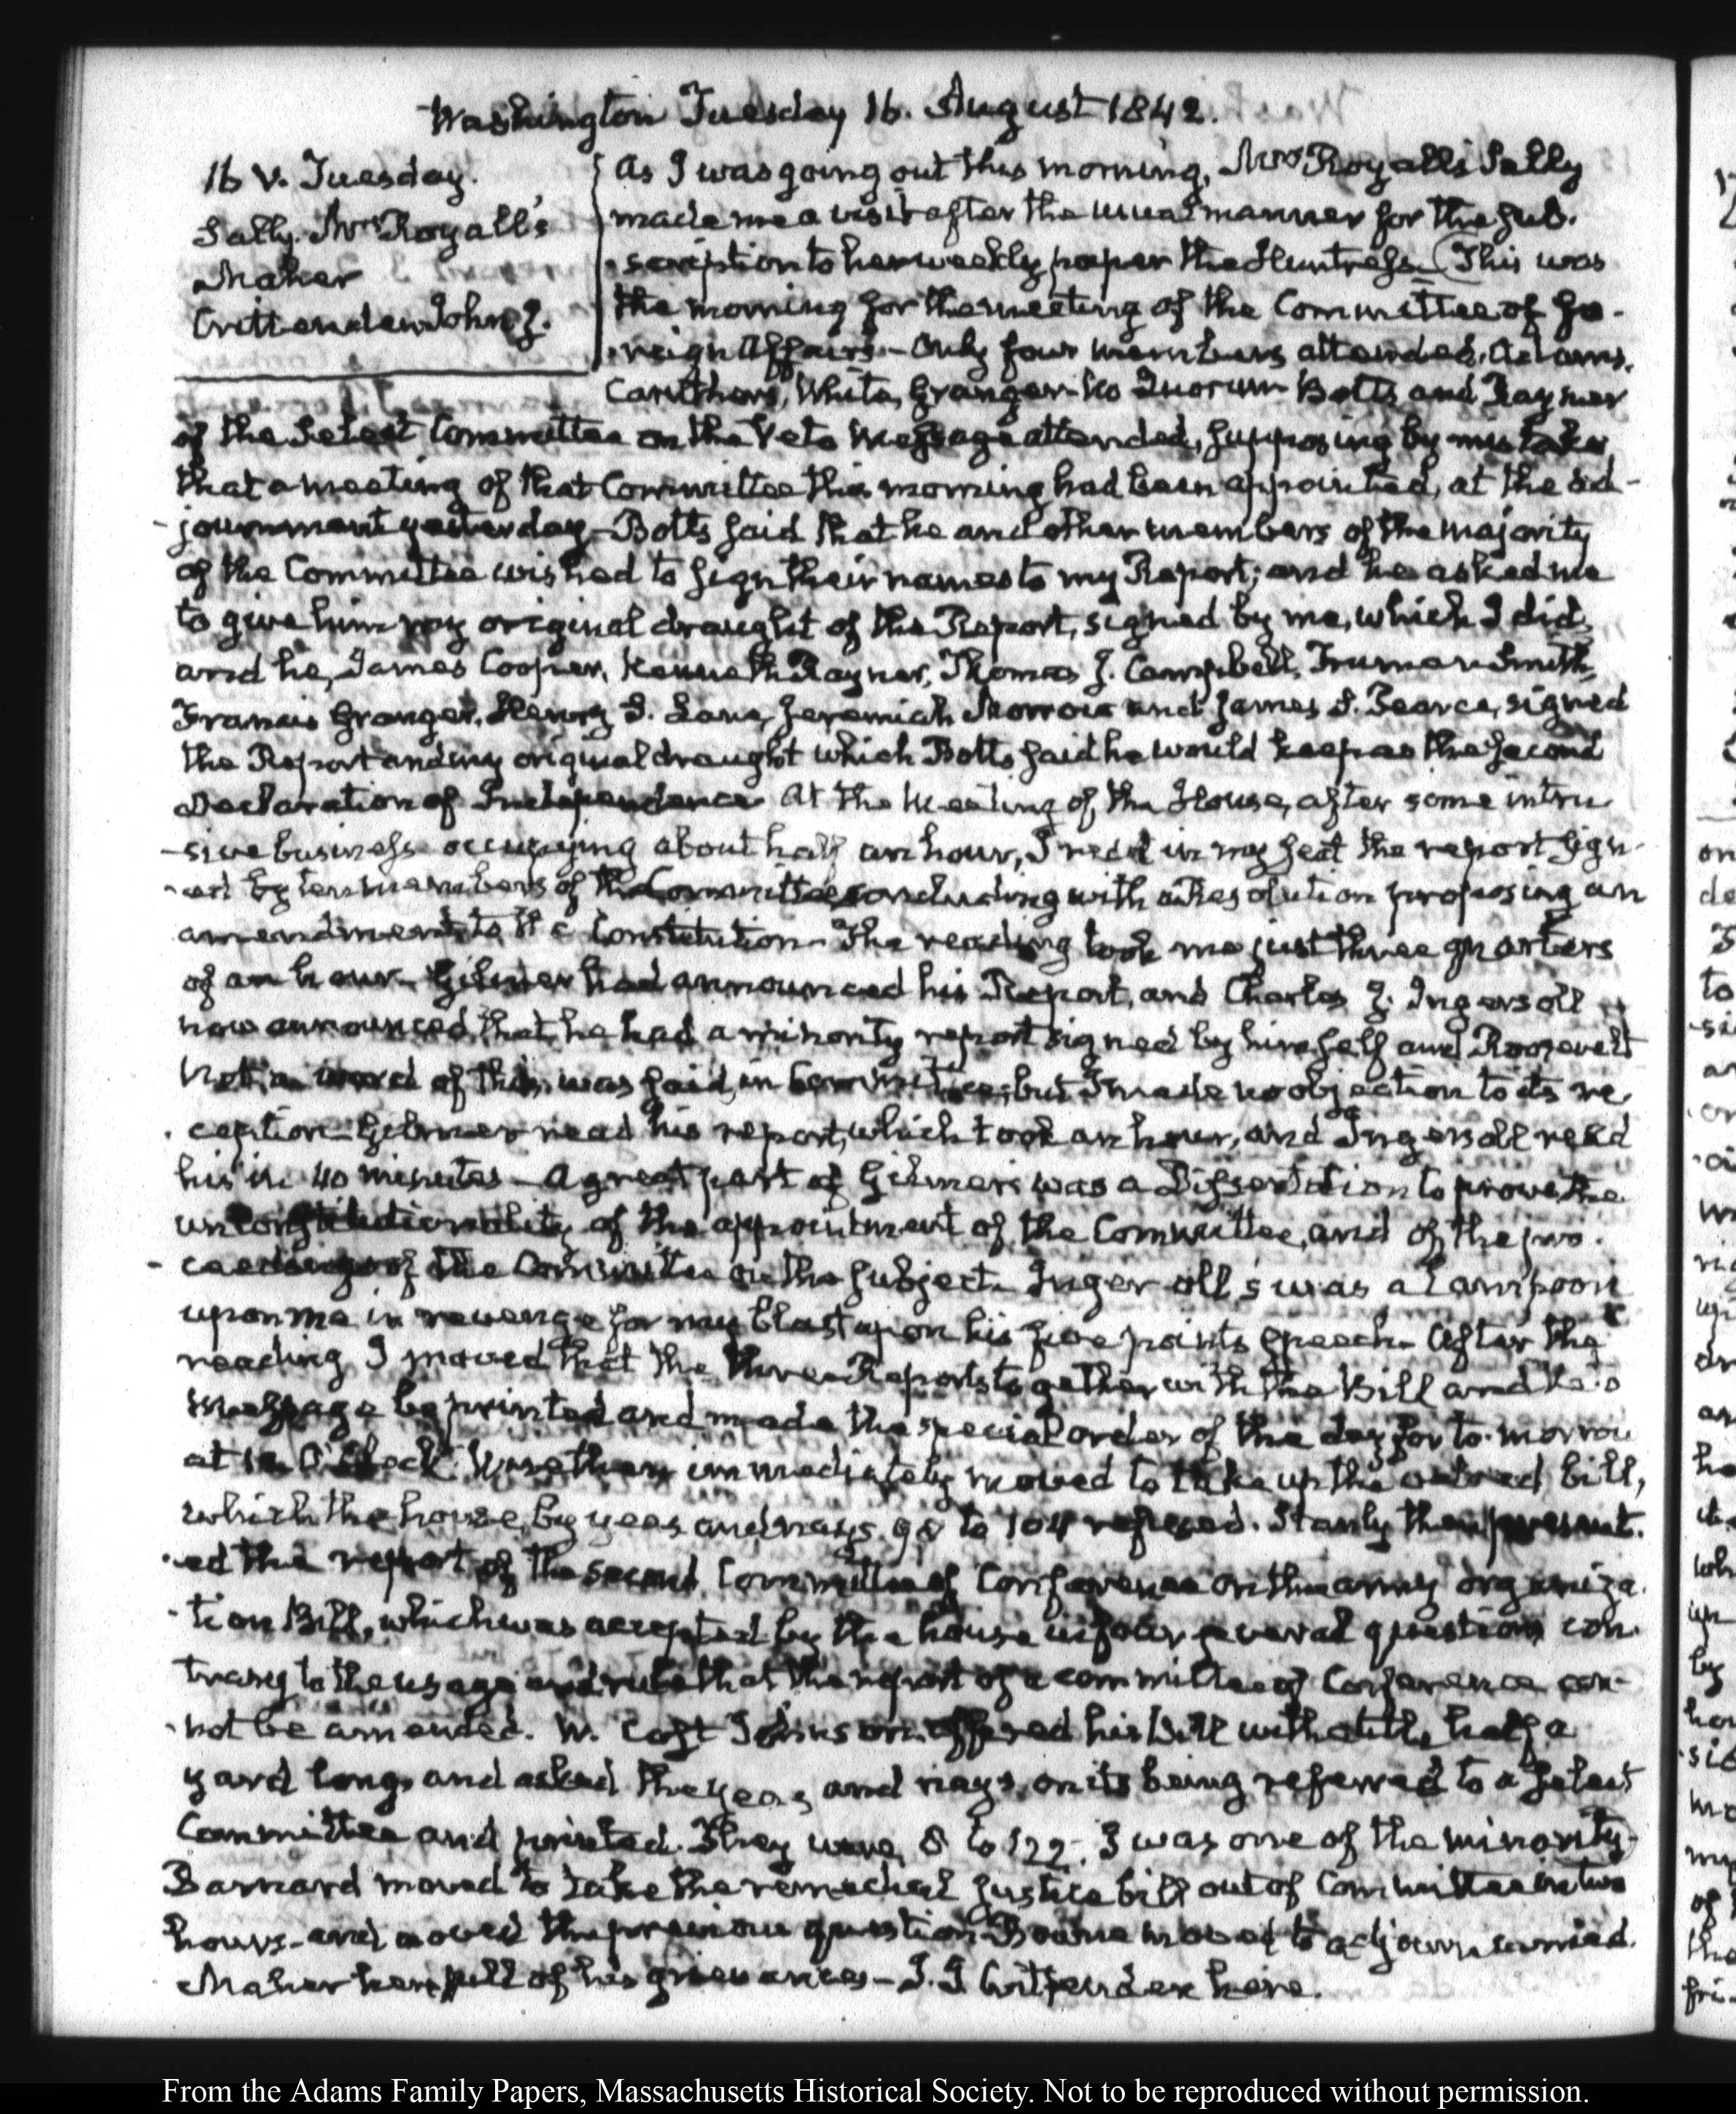 Washington Tuesday 16. August 1842.
16 V. Tuesday.
Sally. Mrs Royall's
Maher
Crittenden John J.
As I was going out this morning, Mrs Royall's Sally
made me a visit after the usual manner for the sub-
scription to her weekly paper the Huntress. This was
the morning for the meeting of the Committee of Fo-
reign Affairs.— Only four members attended, Adams,
Caruthers, White, Granger— No Quorum— Botts and Rayner
of the Select Committee on the Veto Message attended, supposing by mistake,
that a meeting of that Committee this morning had been appointed, at the ad-
journment yesterday— Botts said that he and other members of the majority
of the Committee wished to sign their names to my Report; and he asked me
to give him my original draught of the Report, signed by me, which I did,
and he, James Cooper, Kenneth Rayner, Thomas J. Campbell, Truman Smith,
Francis Granger, Henry S. Lane, Jeremiah Morrow and James A. Pearce, signed
the Report and my original draught which Botts said he would keep as the second
Declaration of Independence. At the Meeting of the House, after some intru-
sive business occupying about half an hour, I read in my seat the report sign-
ed by ten members of the Committee concluding with a Resolution proposing an
amendment to the Constitution— The reading took me just three quarters
of an hour— Gilmer had announced his Report, and Charles J. Ingersoll
now announced, that he had a minority report signed by himself and Roosevelt
Not a word of this, was said, in Committee; but I made no objection to its re-
ception— Gilmer read his report, which took an hour, and Ingersoll read
his in 40 minutes— A great part of Gilmer's was a Dissertation to prove the
unconstitutionality of the appointment of the Committee, and of the pro-
ceedings of the Committee on the subject. Ingersoll's was a Lampoon
upon me in revenge for my blast upon his five points speech— After the
reading I moved that the three Reports together with the Bill and the
Message be printed and made the special order of the day for to-morrow
at 12 O'Clock. immediately moved to take up the vetoed bill,
which the house, by yeas and nays. 98 to 104 refused. Stanly then present-
ed the report of the second Committee of Conference on the army organiza-
tion Bill, which was accepted by the house in four several questions con-
trary to the usage and rule that the report of a committee of Conference can-
not be amended. W. Cost Johnson offered his Bill with a title half a
yard long, and asked the yeas and nays, on its being referred to a Select
Committee and printed. They were, 8 to 122. I was one of the minority—
Barnard moved to take the remedial Justice bill out of Committee in two
hours— and moved the previous question— moved to adjourn carried.
Maher here full of his grievances— J. J. Crittenden here.
From the Adams Family Papers, Massachusetts Historical Society. Not to be reproduced without permission.